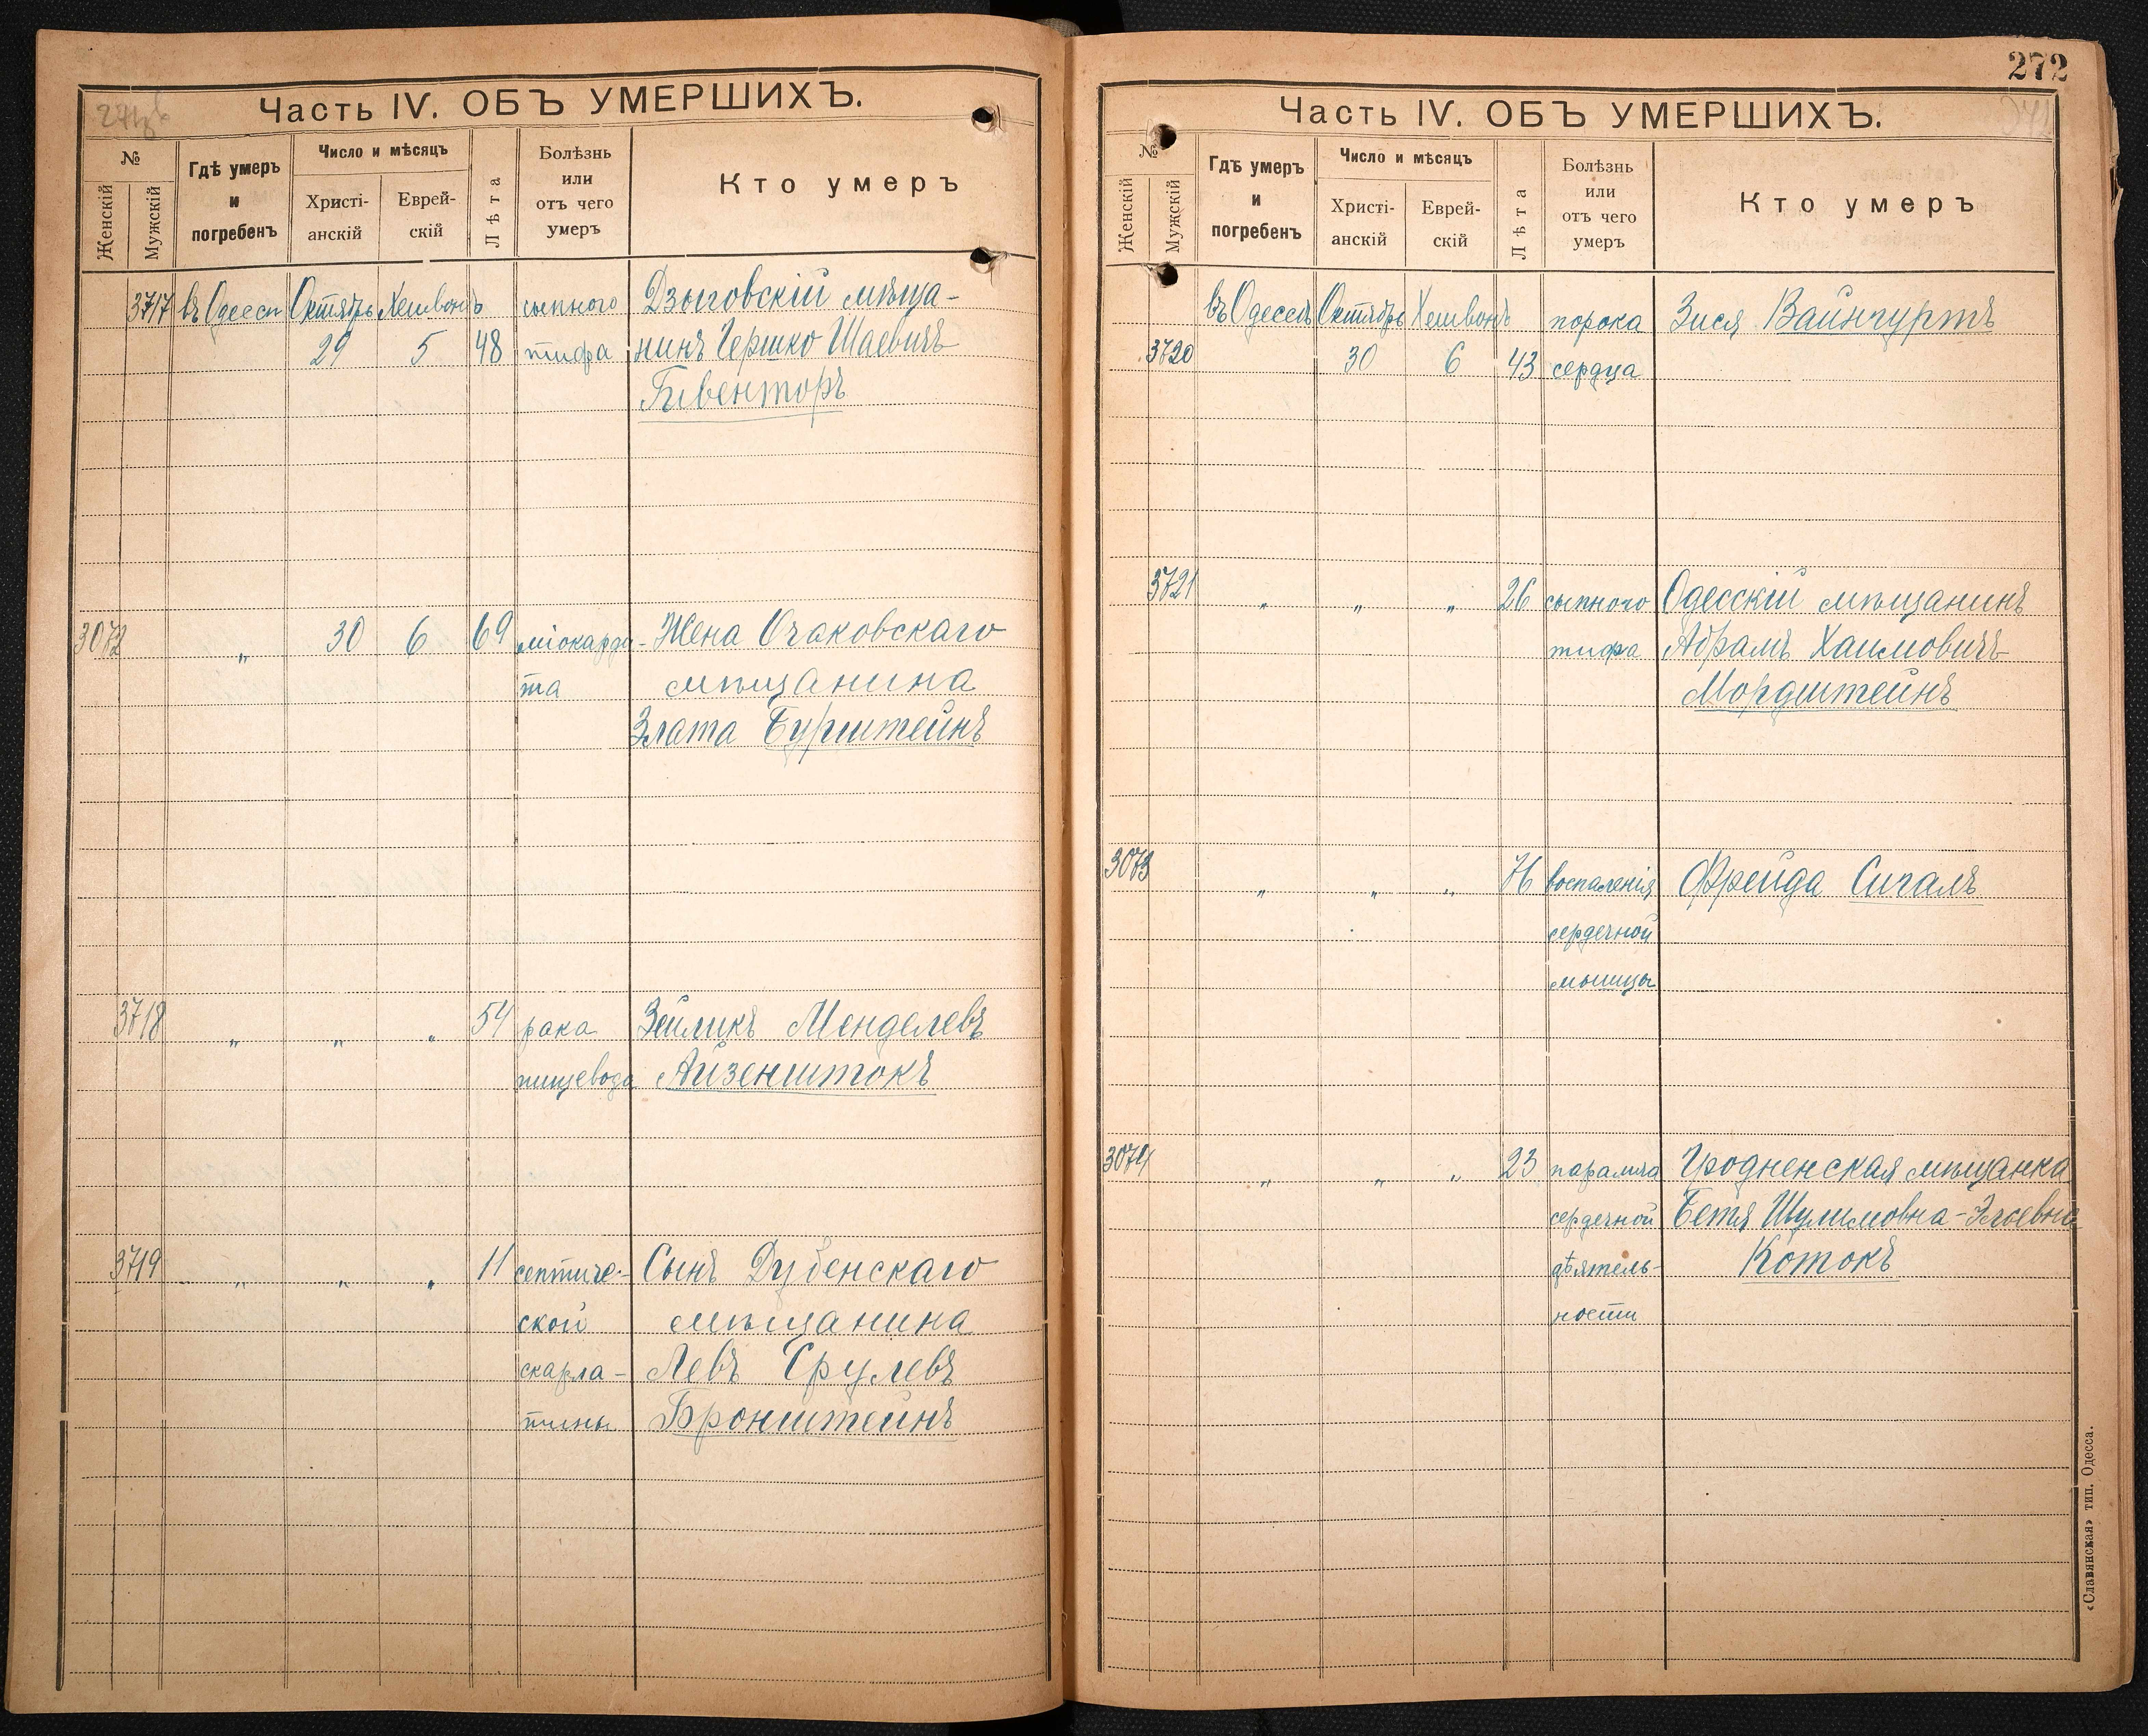 Часть IV. ОБЪ УМЕРШИХЪ.
№
Женскій
Мужскій
Гдѣ умеръ
и
погребенъ
Число и мѣсяцъ
Христі-
анскій
Еврей-
скій
Лѣта
Болѣзнь
или
отъ чего
умеръ
Кто умеръ
3717 въ Одессѣ Октябрь Хешвонъ сыпного Дзыговскій мѣща-
29 5 48 тифа нинъ Гершко Шаевичъ
3072 „ 30 6 69 міокарди- Жена Очаковскаго
та мѣщанина
Злата Бурштейнъ
3718 „ „ „ 54 рака Зейликъ Менделевъ
пищевода Айзенштокъ
3719 „ „ „ 11 септиче- Сынъ Дубенскаго
ской мѣщанина
скарла- Левъ Срулевъ
тины Бронштейнъ
272
Часть IV. ОБЪ УМЕРШИХЪ.
№
Женскій
Мужскій
Гдѣ умеръ
и
погребенъ
Число и мѣсяцъ
Христі-
анскій
Еврей-
скій
Лѣта
Болѣзнь
или
отъ чего
умеръ
Кто умеръ
въ Одессѣ Октябрь Хешвонъ порока Зися Вайнгуртъ
3720 30 6 43 сердца
3721 „ „ „ 26 сыпного Одесскій мѣщанинъ
тифа Абрамъ Хаимовичъ
Мордштейнъ
3073 „ „ „ 76 воспаленія Фрейда Сигалъ
сердечной
мышцы
3074 „ „ „ 23 паралича Гродненская мѣщанка
сердечной Бетя Шулимовна-Эльевна
дѣятель- Котокъ
ности
«Славянская» тип. Одесса.